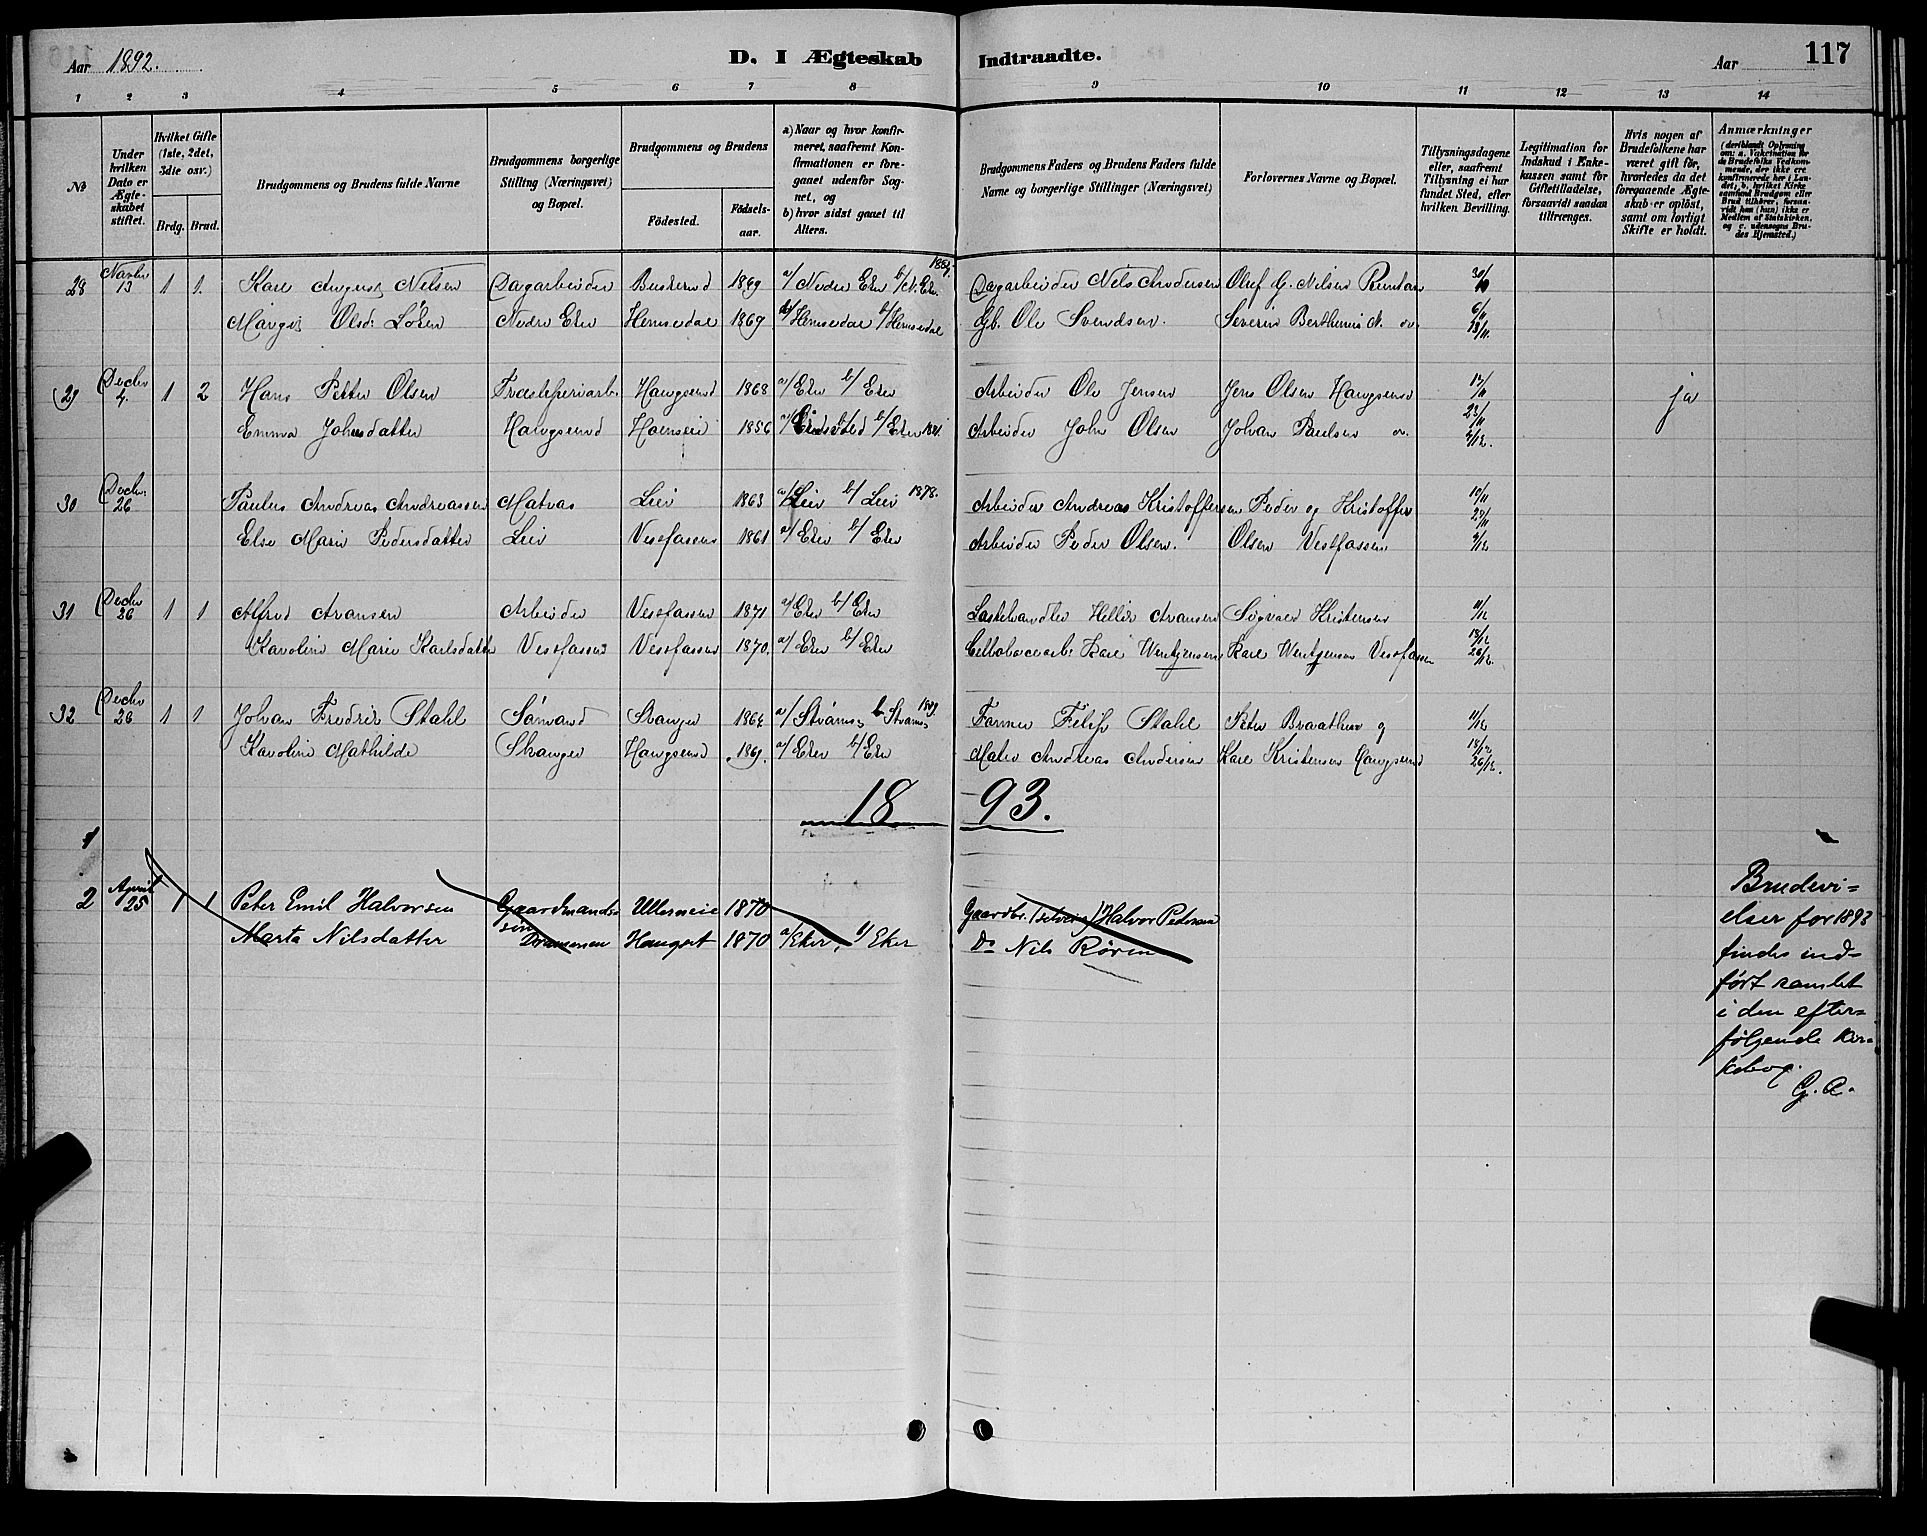 Aar 1892.
D. I Ægteskab Indtraadte.
Aar
117
1 2 3 4 5 6 7 8 9 10 11 12 13 14
No
Under hvilken Dato er Ægteskabet stiftet.
Hvilket Gifte (1ste, 2det, 3die osv.)
Brdg. Brud.
Brudgommens og Brudens fulde Navne
Brudgommens borgerlige Stilling (Næringsvei) og Bopæl.
Brudgommens og Brudens
Fødested.
Fødsels-aar.
a) Naar og hvor konfirmeret, saafremt Konfirmationen er foregaaet udenfor Sognet, og
b) hvor sidst gaaet til Alters.
Brudgommens Faders og Brudens Faders fulde Navne og borgerlige Stillinger (Næringsvei)
Forlovernes Navne og Bopæl.
Tillysningsdagene eller, saafremt Tillysning ei har fundet Sted, efter hvilken Bevilling.
Legitimation for Indskud i Enkekassen samt for Giftetilladelse, forsaavidt saadan tiltrænges.
Hvis nogen af Brudefolkene har været gift før, hvorledes da det foregaaende Ægteskab er opløst, samt om lovligt Skifte er holdt.
Anmærkninger (deriblandt Oplysning om: a. Vakcination for de Brudefolks Vedkommende, der ikke ere konfirmerede her i Landet; b. hvilket Kirkesamfund Brudgom eller Brud tilhører, forsaavidt han (hun) ikke er Medlem af Statskirken, og c. udensogns Brudes Hjemsted.)
28 Novbr 13 1 1. Karl August Nilsen Dagarbeider Buskerud 1869 a/ Nedre Eker b/ N. Eker Dagarbeider Nils Andersen Oluf G. Nilsen 30/10
Margit Olsd: Løken Nedre Eker Hemsedal 1869 a/ Hemsedal b/ Hemsedal Gb. Ole Svendsen. Severin 6/11 13/11
29 Decbr 4. 1 2 Hans Petter Olsen Træsliperiarb. Haugsund 1868 a/ Eker b/ Eker Arbeider Ole Jensen Jens Olsen Haugsund ja
Emma Johnsdatter Haugsund 1856 b/ Eker Arbeider John Olsen Johan Paulsen 4/12.
30 Decbr 26 Paulus Andreas Andreassen Matros Lier 1863 a/ Lier b/ Lier 1878. Arbeider Andreas Kristoffersen Peder og Kristoffer
Else Marie Pedersdatter Lier Vestfossen 1861 a/ Eker b/ Eker Arbeider Peder Olsen. Olsen Vestfossen 4/12
31 Decbr 26 1 1 Alfred Aronsen Arbeider Vestfossen 1871 a/ Eker b/ Eker Aronsen Sigvald Kristensen 11/12
Karoline Marie Karlsdatter Vestfossen Vestfossen 1870. a/ Eker b/ Eker Karl Karl Vestfossen 18/12 26/12.
32 Decbr 26 1 1 Johan Fredrik Stahl Sømand 1864 a/ Strøms b/ Strøms 1889 Farmer Filip Stahl Peter Braathen og 11/12
Karoline Mathilde Haugsund 1869. a/ Eker b/ Eker Maler Andreas Andersen Karl Kristensen Haugsund 18/12 26/12.
1893.
1
2 April 25 1 1 Peter Emil Halvorsen Gaardmandssøn Ullerneie 1870 Gaardbr. (selveier) Halvor Pedersen
Marta Nilsdatter Drammen Hougst 1870 a/ Eker, b/ Eker Do Nils Røren
Brudevi=
elser for 1893
findes ind=
ført samlet
i den efter=
følgende Kir=
kebog.
G. A.